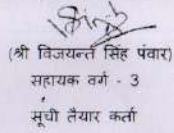 (श्री विजयन्त सिंह पंवार)
सहायक वर्ग - 3
सूची तैयार कर्ता